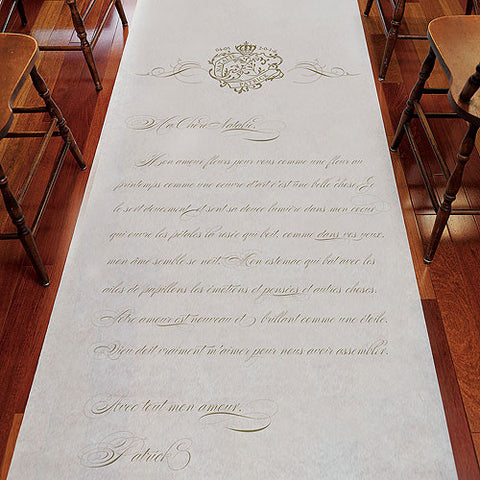 PATRICK
Ma Chère Natalie,
Mon amour fleurs pour vous comme une fleur au
printemps comme une oeuvre d'art c'est une belle chose. Et
le soit doucement, et sent sa douce lumière dans mon coeur
qui ouvre les pétales la rosée qui boit, comme dans vos yeux,
mon âme semble se noit. Mon estomac qui bat avec les
ailes de papillons les émotions et pensées et autres choses.
Notre amour est nouveau et brillant comme une étoile.
Dieu doit vraiment m'aimer pour nous avoir assembler.
Avec tout mon amour,
Patrick